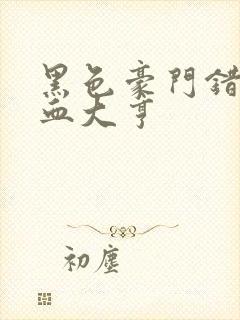 黑色豪門錯
血大亨
初塵